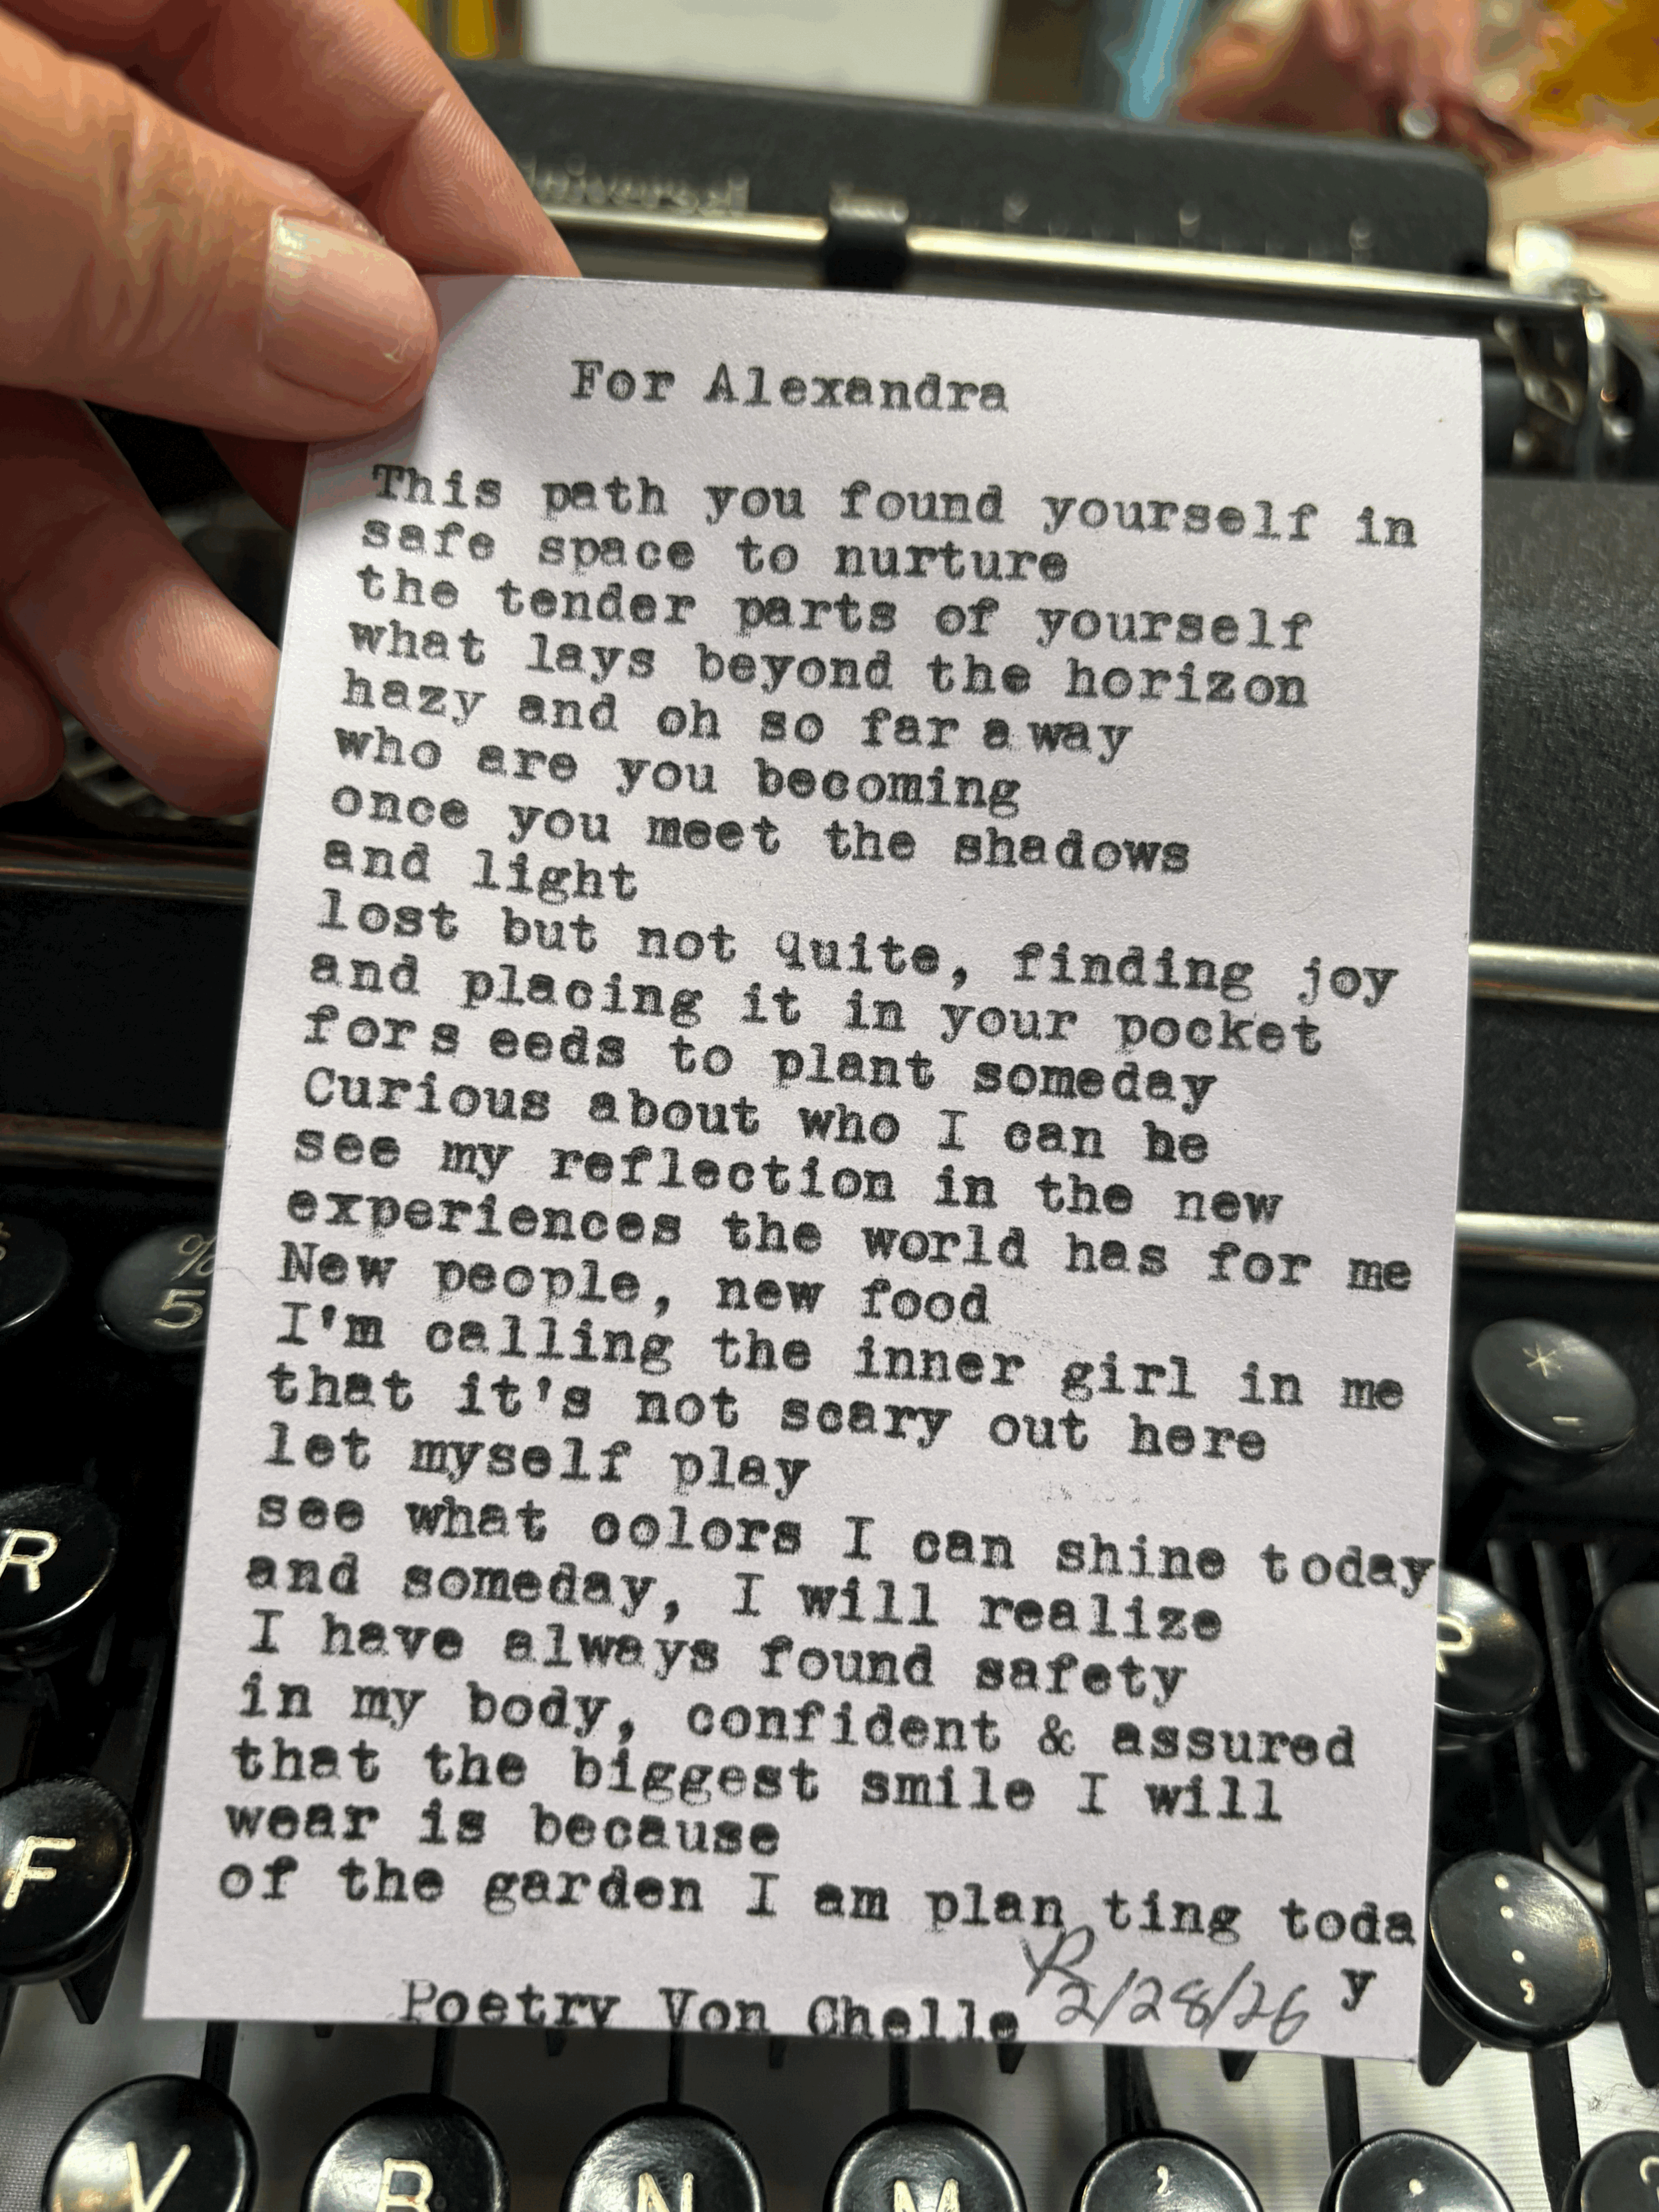 Universal
For Alexandra
This path you found yourself in
safe space to nurture
the tender parts of yourself
what lays beyond the horizon
hazy and oh so far away
who are you becoming
once you meet the shadows
and light
lost but not quite, finding joy
and placing it in your pocket
fors eeds to plant someday
Curious about who I can be
see my reflection in the new
experiences the world has for me
New people, new food
I'm calling the inner girl in me
that it's not scary out here
let myself play
see what colors I can shine today
and someday, I will realize
I have always found safety
in my body, confident & assured
that the biggest smile I will
wear is because
of the garden I am plan ting toda
y
Poetry Von Chelle 2/28/26
%
5
*
-
R
P
F
:
;
V
B
N
M
,
.